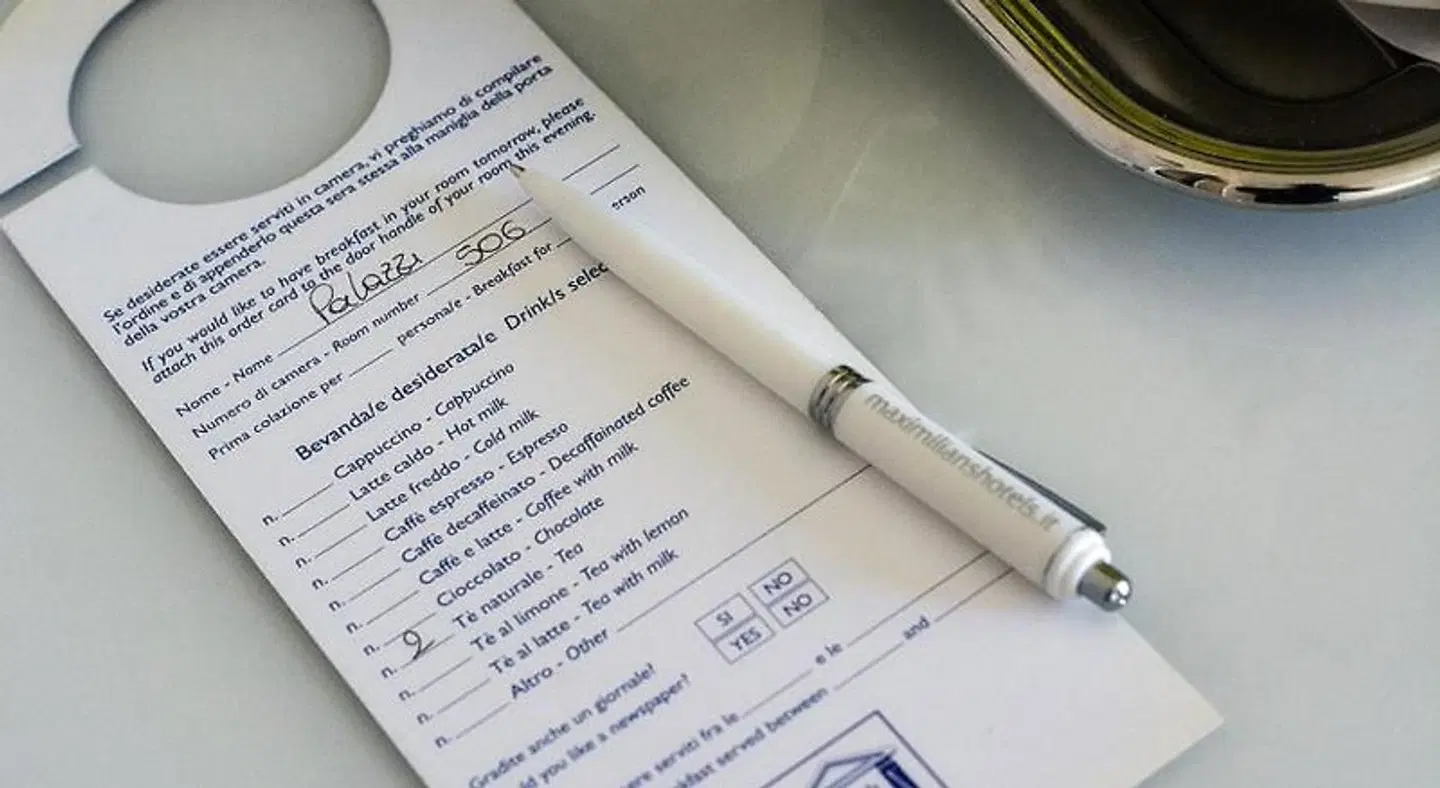 Se desiderate essere serviti in camera, vi preghiamo di compilare
l'ordine e di appenderlo questa sera stessa alla maniglia della porta
della vostra camera.
If you would like to have breakfast in your room tomorrow, please
attach this order card to the door handle of your room this evening.
Nome - Name Palazzi
Numero di camera - Room number 506
Prima colazione per ____ persona/e - Breakfast for ____ erson
Bevanda/e desiderata/e Drink/s selec
n. ____ Cappuccino - Cappuccino
n. ____ Latte caldo - Hot milk
n. ____ Latte freddo - Cold milk
n. ____ Caffè espresso - Espresso
n. ____ Caffè decaffeinato - Decaffeinated coffee
n. ____ Caffè e latte - Coffee with milk
n. ____ Cioccolato - Chocolate
n. 2 Tè naturale - Tea
n. ____ Tè al limone - Tea with lemon
n. ____ Tè al latte - Tea with milk
n. ____ Altro - Other
Gradite anche un giornale?
would you like a newspaper?
SI NO
YES NO
ere serviti fra le ____ e le ____
kfast served between ____ and ____
maximilianshotels.it